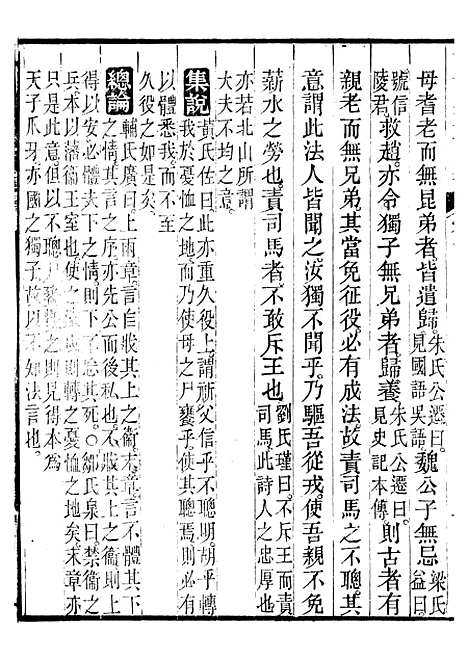 母耆老而無昆弟者皆遣歸朱氏公遷曰見國語吳語魏公子無忌梁氏益曰
號信陵君救趙亦令獨子無兄弟者歸養朱氏公遷曰見史記本傳則古者有
親老而無兄弟其當免征役必有成法故責司馬之不聰其
意謂此法人皆聞之汝獨不聞乎乃驅吾從戎使吾親不免
薪水之勞也責司馬者不敢斥王也劉氏瑾曰不斥王而責司馬此詩人之忠厚也
亦若北山所謂
大夫不均之意
集說 黃氏佐曰此亦重久役上謂祈父信乎不聰明胡乎轉
我於憂恤之地使母之尸饔乎使其聰焉則必有
以體悉我而不至
久役之如是矣
總論 輔氏廣曰上兩章言自戕其上之衛末章言不體其下
之情其言之序亦先公而後私也不戕其上之衛則上
得以安必體夫下之情則下忘其死○鄒氏泉曰禁衛之
兵本以藩衛王室也使之則轉之憂恤之地矣末章亦
只是此意但以不聰尸饔之則見得本爲
天子爪牙亦國之獨子故以不如法言也